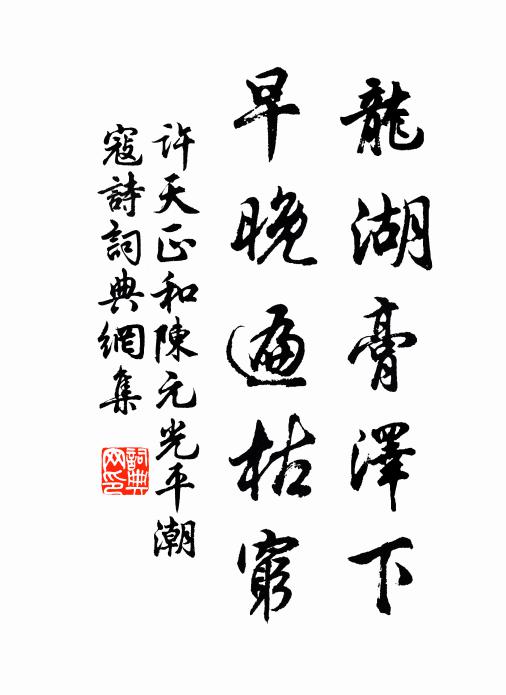 龍湖膏澤下
早晚遍枯窮
許天正和陳元光平潮
寇詩詞典網集
詞典網印